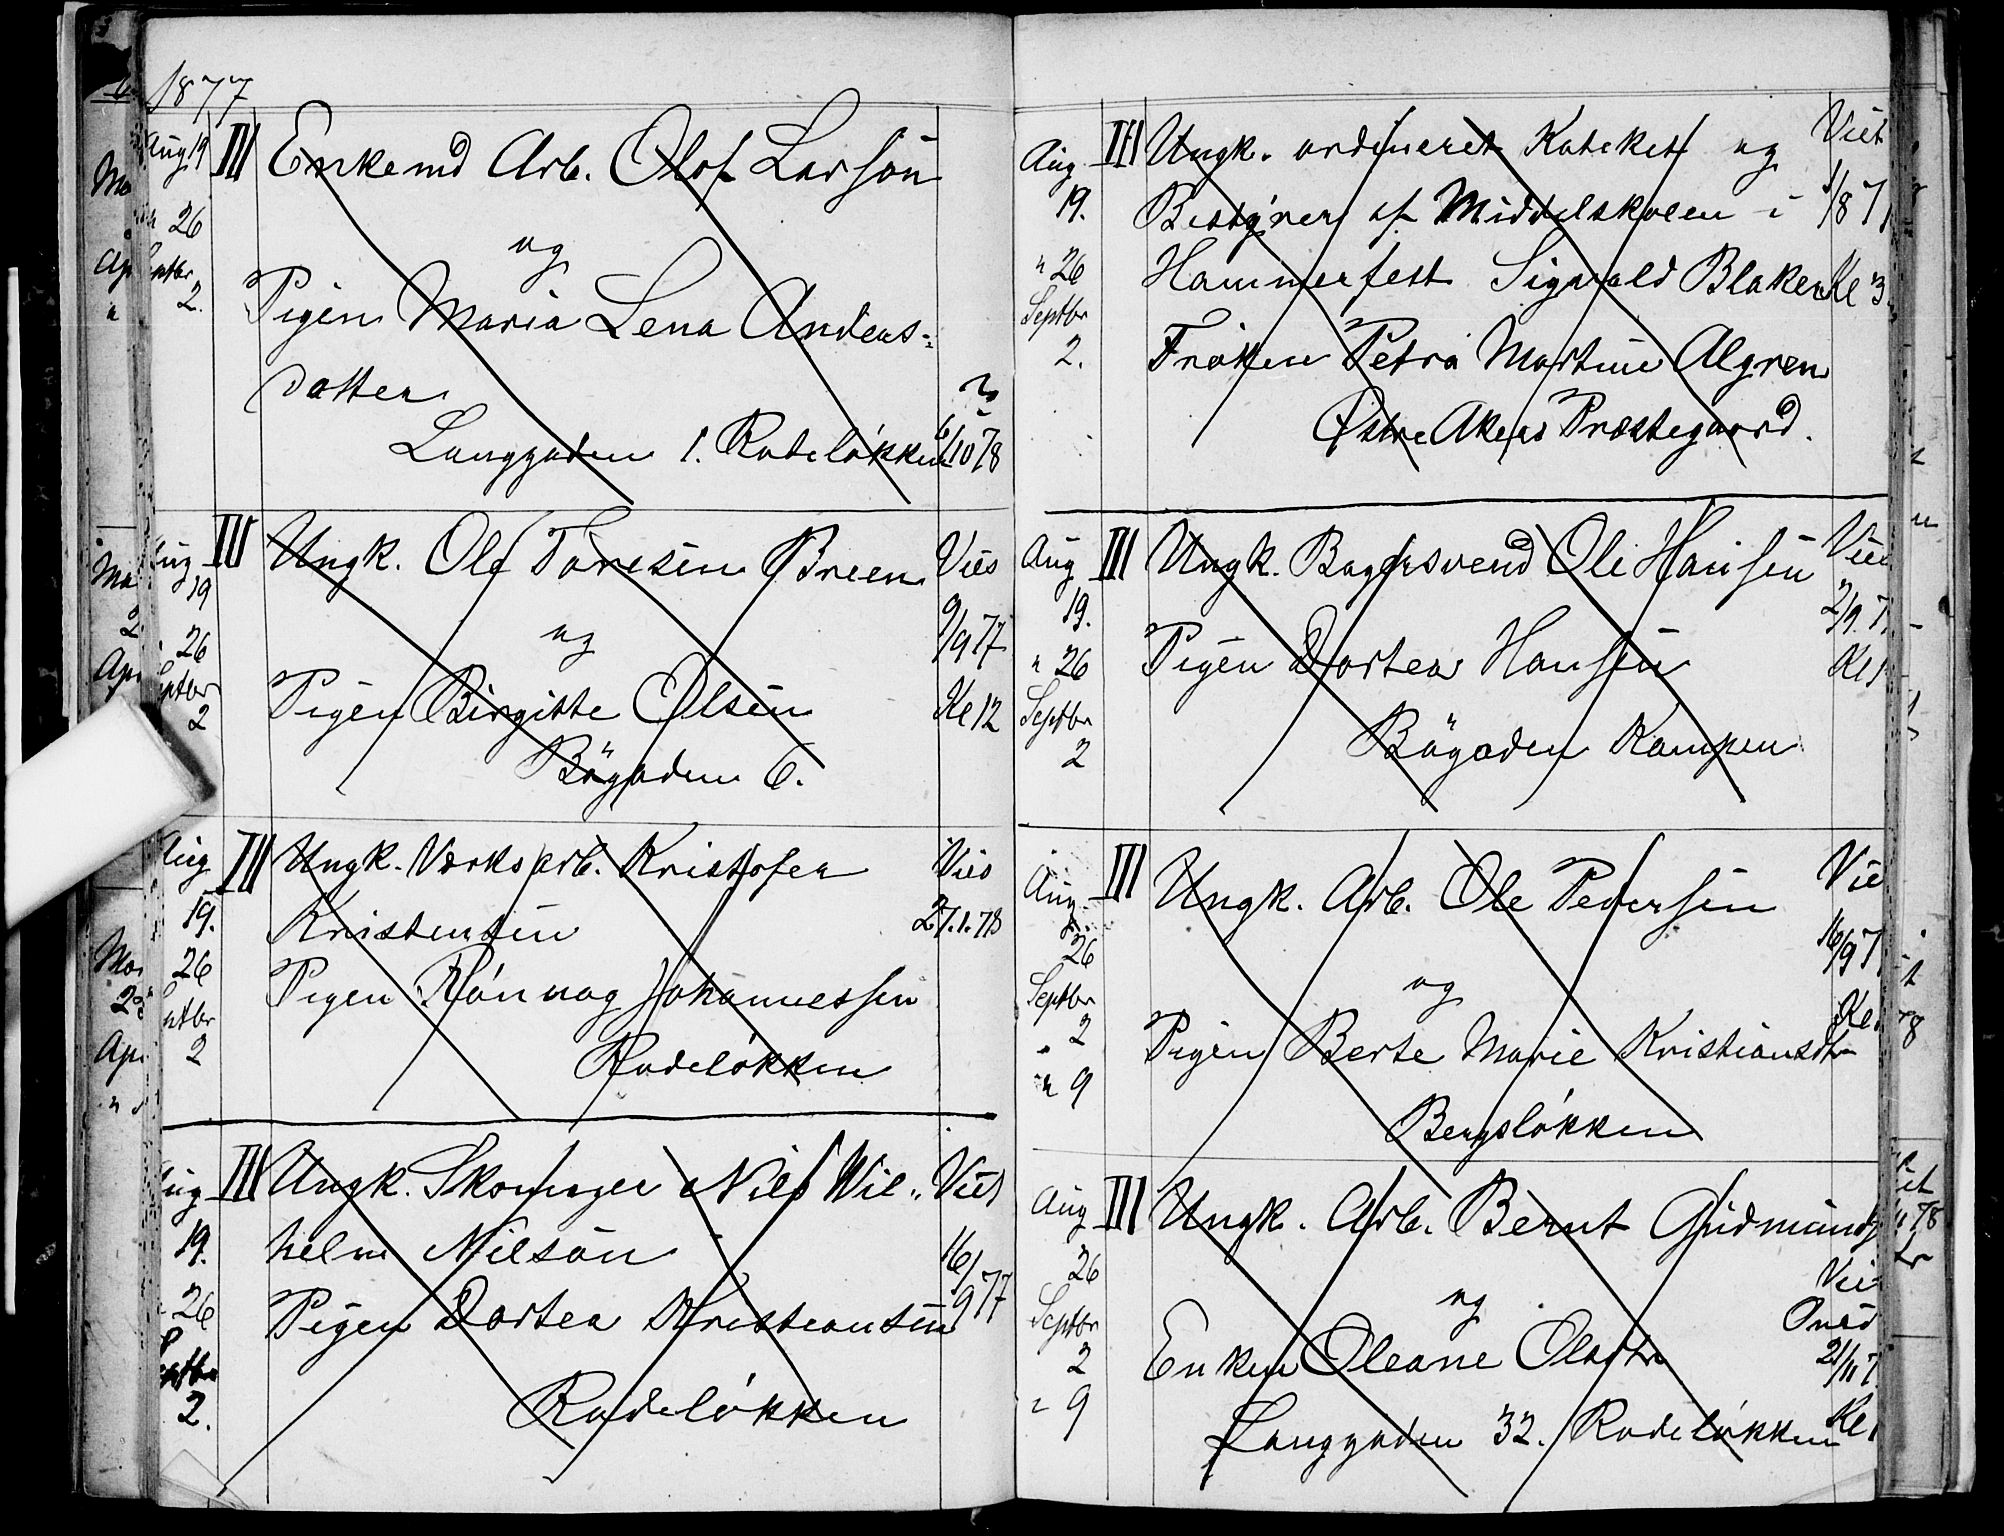 1877
Aug 19 III Enkemd Arb. Olof Larson
" 26 og
Septbr 2. Pigen Maria Lena Andeas-
datter
Langgaden 1. Rodeløkken 6/10 78
Aug 19 III Ungk. Ole Toresen Breen Vies
" 26 og 9/9 77
Septbr 2 Pigen Birgitte Olsen Kl 12
Bøgaden 6.
Aug III Ungk. Værksarb. Kristofer Vies
19. Kristensen 27.1.78
26 Pigen Rønnog Johannessen
Septbr 2 Rodeløkken
Aug III Ungk. Skomager Nils Wil- Viet
19. helm Nilson 16/9 77
" 26 Pigen Dortea Kristiansen
Septbr 2. Rodeløkken
Aug III Ungk. ordineret Katekel og Viet
19. Bestyrer af Middelskolen i /8 7
" 26 Hammerfest Sigvald Blaker Kl 3
Septbr
2. Frøken Petra Martine Algren
Østre Akers Præstegaard.
Aug III Ungk. Bagersvend Ole Hansen Vie
19. 2/9. 7
" 26 Pigen Dortea Hansen Kl
Septbr
2 Bøgaden Kampen
Aug. III Ungk. Arb. Ole Pedersen Vie
26 og 16/9 7
Septbr Kl
2 Pigen Berte Marie Kristiansdtr
" 9 Bergsløkken
Aug III Ungk. Arb. Bernt Gudmunds
26 og Vie
Septbr Ons
2 Enken Oleane Olsdtr 21/11 7
" 9 Langgaden 32. Rodeløkken Kl